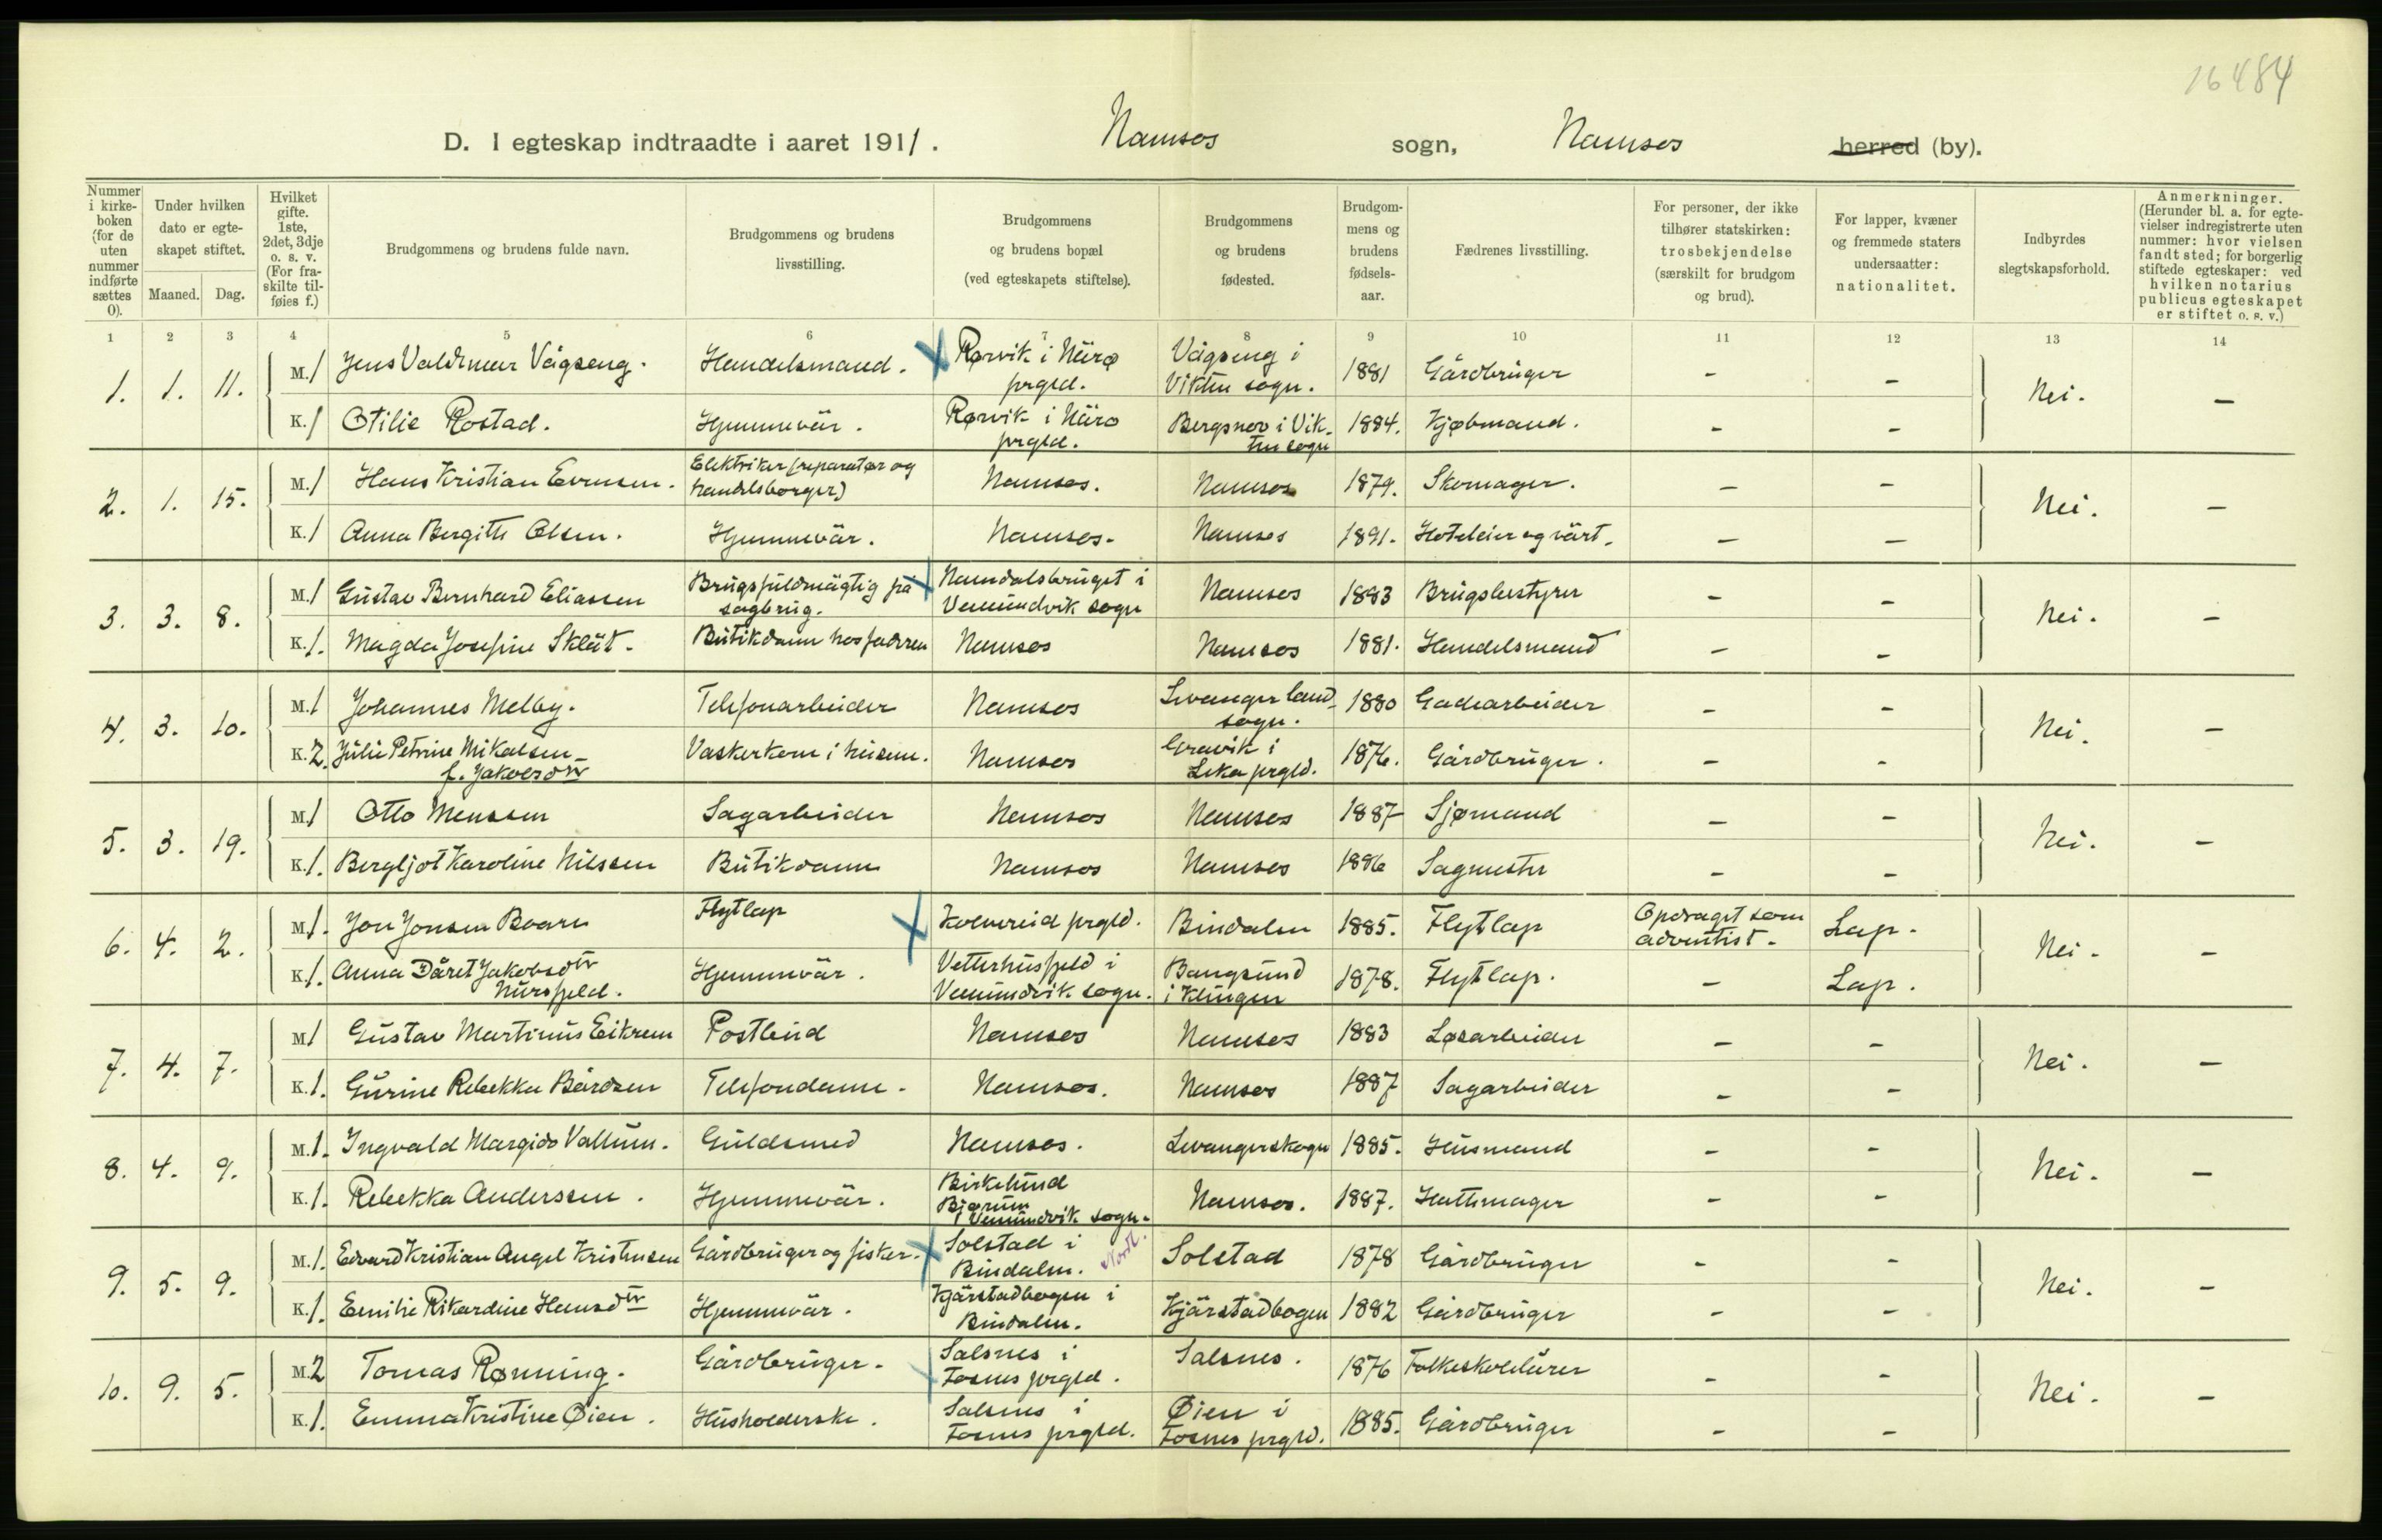 16484
D. I egteskap indtraadte i aaret 1911. Namsos sogn, Namsos herred (by).
Nummer i kirke-boken (for de uten nummer indførte sættes 0).
Under hvilken dato er egte-skapet stiftet.
Maaned. Dag.
Hvilket gifte. 1ste, 2det, 3dje o. s. v. (For fra-skilte til-føies f.)
Brudgommens og brudens fulde navn.
Brudgommens og brudens livsstilling.
Brudgommens og brudens bopæl (ved egteskapets stiftelse).
Brudgommens og brudens fødested.
Brudgom-mens og brudens fødsels-aar.
Fædrenes livsstilling.
For personer, der ikke tilhører statskirken: trosbekjendelse (særskilt for brudgom og brud).
For lapper, kvæner og fremmede staters undersaatter: nationalitet.
Indbyrdes slegtskapsforhold.
Anmerkninger. (Herunder bl. a. for egte-vielser indregistrerte uten nummer: hvor vielsen fandt sted; for borgerlig stiftede egteskaper: ved hvilken notarius publicus egteskapet er stiftet o. s. v.)
1 2 3 4 5 6 7 8 9 10 11 12 13 14
1. 1. 11. M. 1 Jens Valdimar Vågseng. Handelsmand. Rørvik i Närø prgld. Vågseng i Vikten sogn. 1881 Gårdbruger - - Nei. -
K. 1 Otilie Rostad. Hjemmevär. Rørvik i Närø prgld. Bergsnov i Vikten sogn 1884. Kjøbmand. - -
2. 1. 15. M. 1 Hans Kristian Evensen. Elektriker (reparatør og handelsborger) Namsos. Namsos 1879. Skomager. - - Nei. -
K. 1 Anna Bergitte Olsen. Hjemmevär. Namsos. Namsos 1891. Hoteleier og värt. - -
3. 3. 8. M. 1 Gustav Bernhard Eliassen Brugsfuldmägtig på sagbrug. Namdalsbruget i Vemundvik sogn Namsos 1883 Brugsbestyrer - - Nei. -
K. 1. Magda Josefine Sklät. Butikdame hos faderen Namsos Namsos 1881. Handelsmand - -
4. 3. 10. M. 1 Johannes Melby. Telefonarbeider Namsos Levanger landsogn. 1880 Gadearbeider - - Nei. -
K. 2. Julie Petrine Mikalsen f. Jakobsdtr Vaskerkone i husene. Namsos Gravik i Leka prgld. 1876. Gårdbruger. - -
5. 3. 19. M. 1 Otto Monssen Sagarbeider Namsos Namsos 1887 Sjømand - - Nei. -
K. 1. Bergljot Karoline Nilssen Butikdame Namsos Namsos 1886 Sagmester - -
6. 4. 2. M. 1. Jon Jonsen Boarn Flytlap Kolvereid prgld. Bindalen 1885. Flytlap Opdraget som adventist. Lap. Nei. -
K. 1. Anna Dåret Jakobsdtr Nursfjeld. Hjemmevär. Vetterhusfjeld i Vemundvik sogn. Bangsund i Klingen 1878. Flytlap. - Lap.
7. 4. 7. M. 1 Gustav Martinus Eikrem Postbud Namsos Namsos 1883 Løsarbeider - - Nei. -
K. 1. Gurine Rebekka Bårdsen Telefondame. Namsos. Namsos 1887 Sagarbeider - -
8. 4. 9. M. 1. Ingvald Margido Vallum. Guldsmed Namsos. Levangerskogn 1885. Husmand - - Nei. -
K. 1. Rebekka Anderssen. Hjemmevär. Birkelund Bjørum i Vemundvik sogn. Namsos. 1887. Hattemager - -
9. 5. 9. M. 1. Edvard Kristian Angel Kristensen Gårdbruger og fisker. Solstad i Bindalen. Nordl. Solstad 1878 Gårdbruger - - Nei. -
K. 1. Emilie Rikardine Hansdtr Hjemmevär. Kjärstadbogen i Bindalen. Kjärstadbogen 1882 Gårdbruger - -
10. 9. 5. M. 2 Tomas Rønning. Gårdbruger. Salsnes i Fosnes prgld. Salsnes. 1876 Folkeskolelärer - - Nei. -
K. 1. Emma Kristine Øien. Husholderske. Salsnes i Fosnes prgld. Øien i Fosnes prgld. 1885. Gårdbruger - -